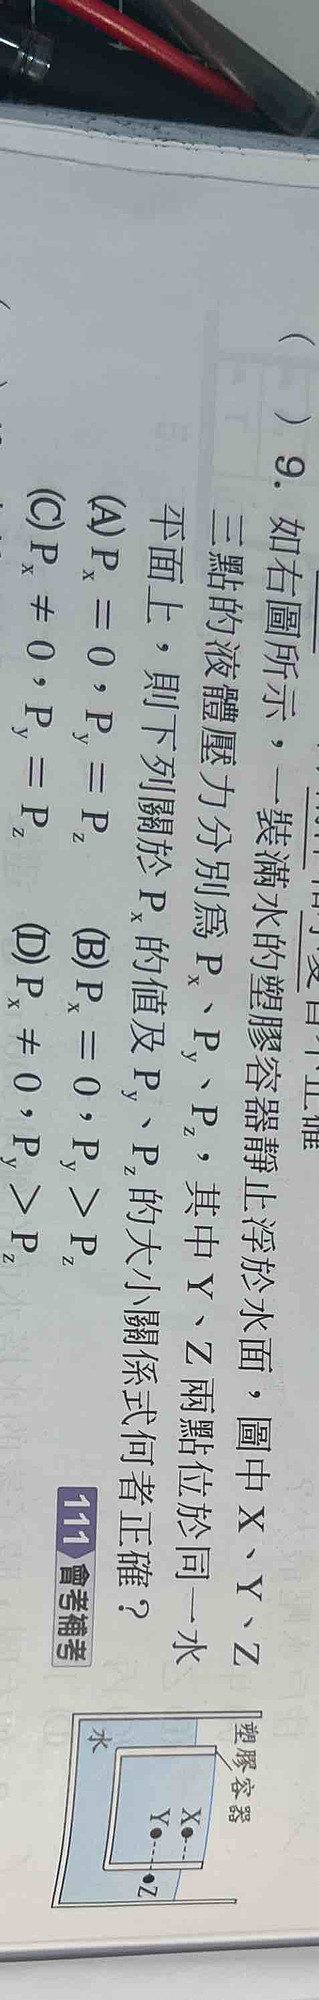 ( ) 9. 如右圖所示，一裝滿水的塑膠容器靜止浮於水面，圖中 X、Y、Z
三點的液體壓力分別為 Px、Py、Pz，其中 Y、Z 兩點位於同一水
平面上，則下列關於 Px 的值及 Py、Pz 的大小關係式何者正確？
(A) Px = 0，Py = Pz (B) Px = 0，Py > Pz
(C) Px ≠ 0，Py = Pz (D) Px ≠ 0，Py > Pz
111 會考補考
塑膠容器
X
Y
Z
水